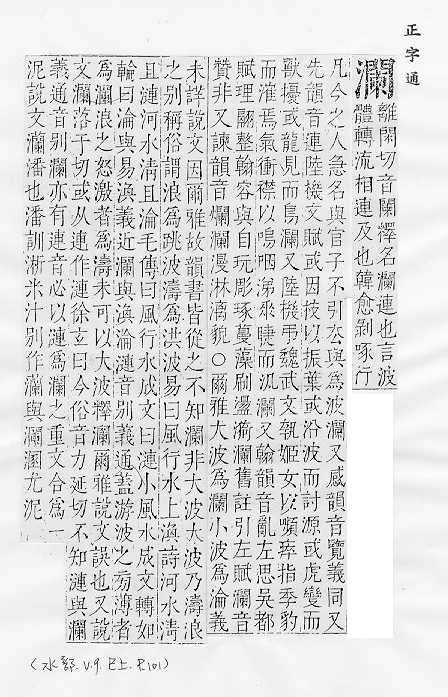 正字通
瀾
離閑切音闌釋名瀾連也言波
體轉流相連及也韓愈剝啄行
凡今之人急名與官子不引去與為波瀾又感韻音覽義同又
先韻音連陸機文賦或因枝以振葉或沿波而討源或虎變而
獸擾或龍見而鳥瀾又陸機弔魏武文執姬女以嚬瘁指季豹
而漼焉氣衝襟以嗚咽涕垂睫而汍瀾又翰韻音亂左思吳都
賦理翮整翰容與自玩彫琢蔓藻刷盪漪瀾舊註引左賦瀾音
贊非又諫韻音爛瀾漫淋漓貌○爾雅大波為瀾小波為淪義
未詳說文因爾雅故韻書皆從之不知瀾非大波大波乃濤浪
之別稱俗謂浪為跳波濤為洪波易曰風行水上渙詩河水清
且漣河水清且淪毛傳曰風行水成文曰漣小風水成文轉如
輪曰淪與易渙義近瀾與漪淪漣音別義通蓋游波之薄者
為瀾浪之怒激者為濤未可以大波釋瀾爾雅說文誤也又說
文瀾落干切或从連作漣徐玄曰今俗音力延切不知漣與瀾
義通音別瀾亦有連音必以漣為瀾之重文合為一
泥說文瀾潘也潘訓淅米汁別作灡與瀾溷尤泥
(水部.V.9.巳上.P.101)